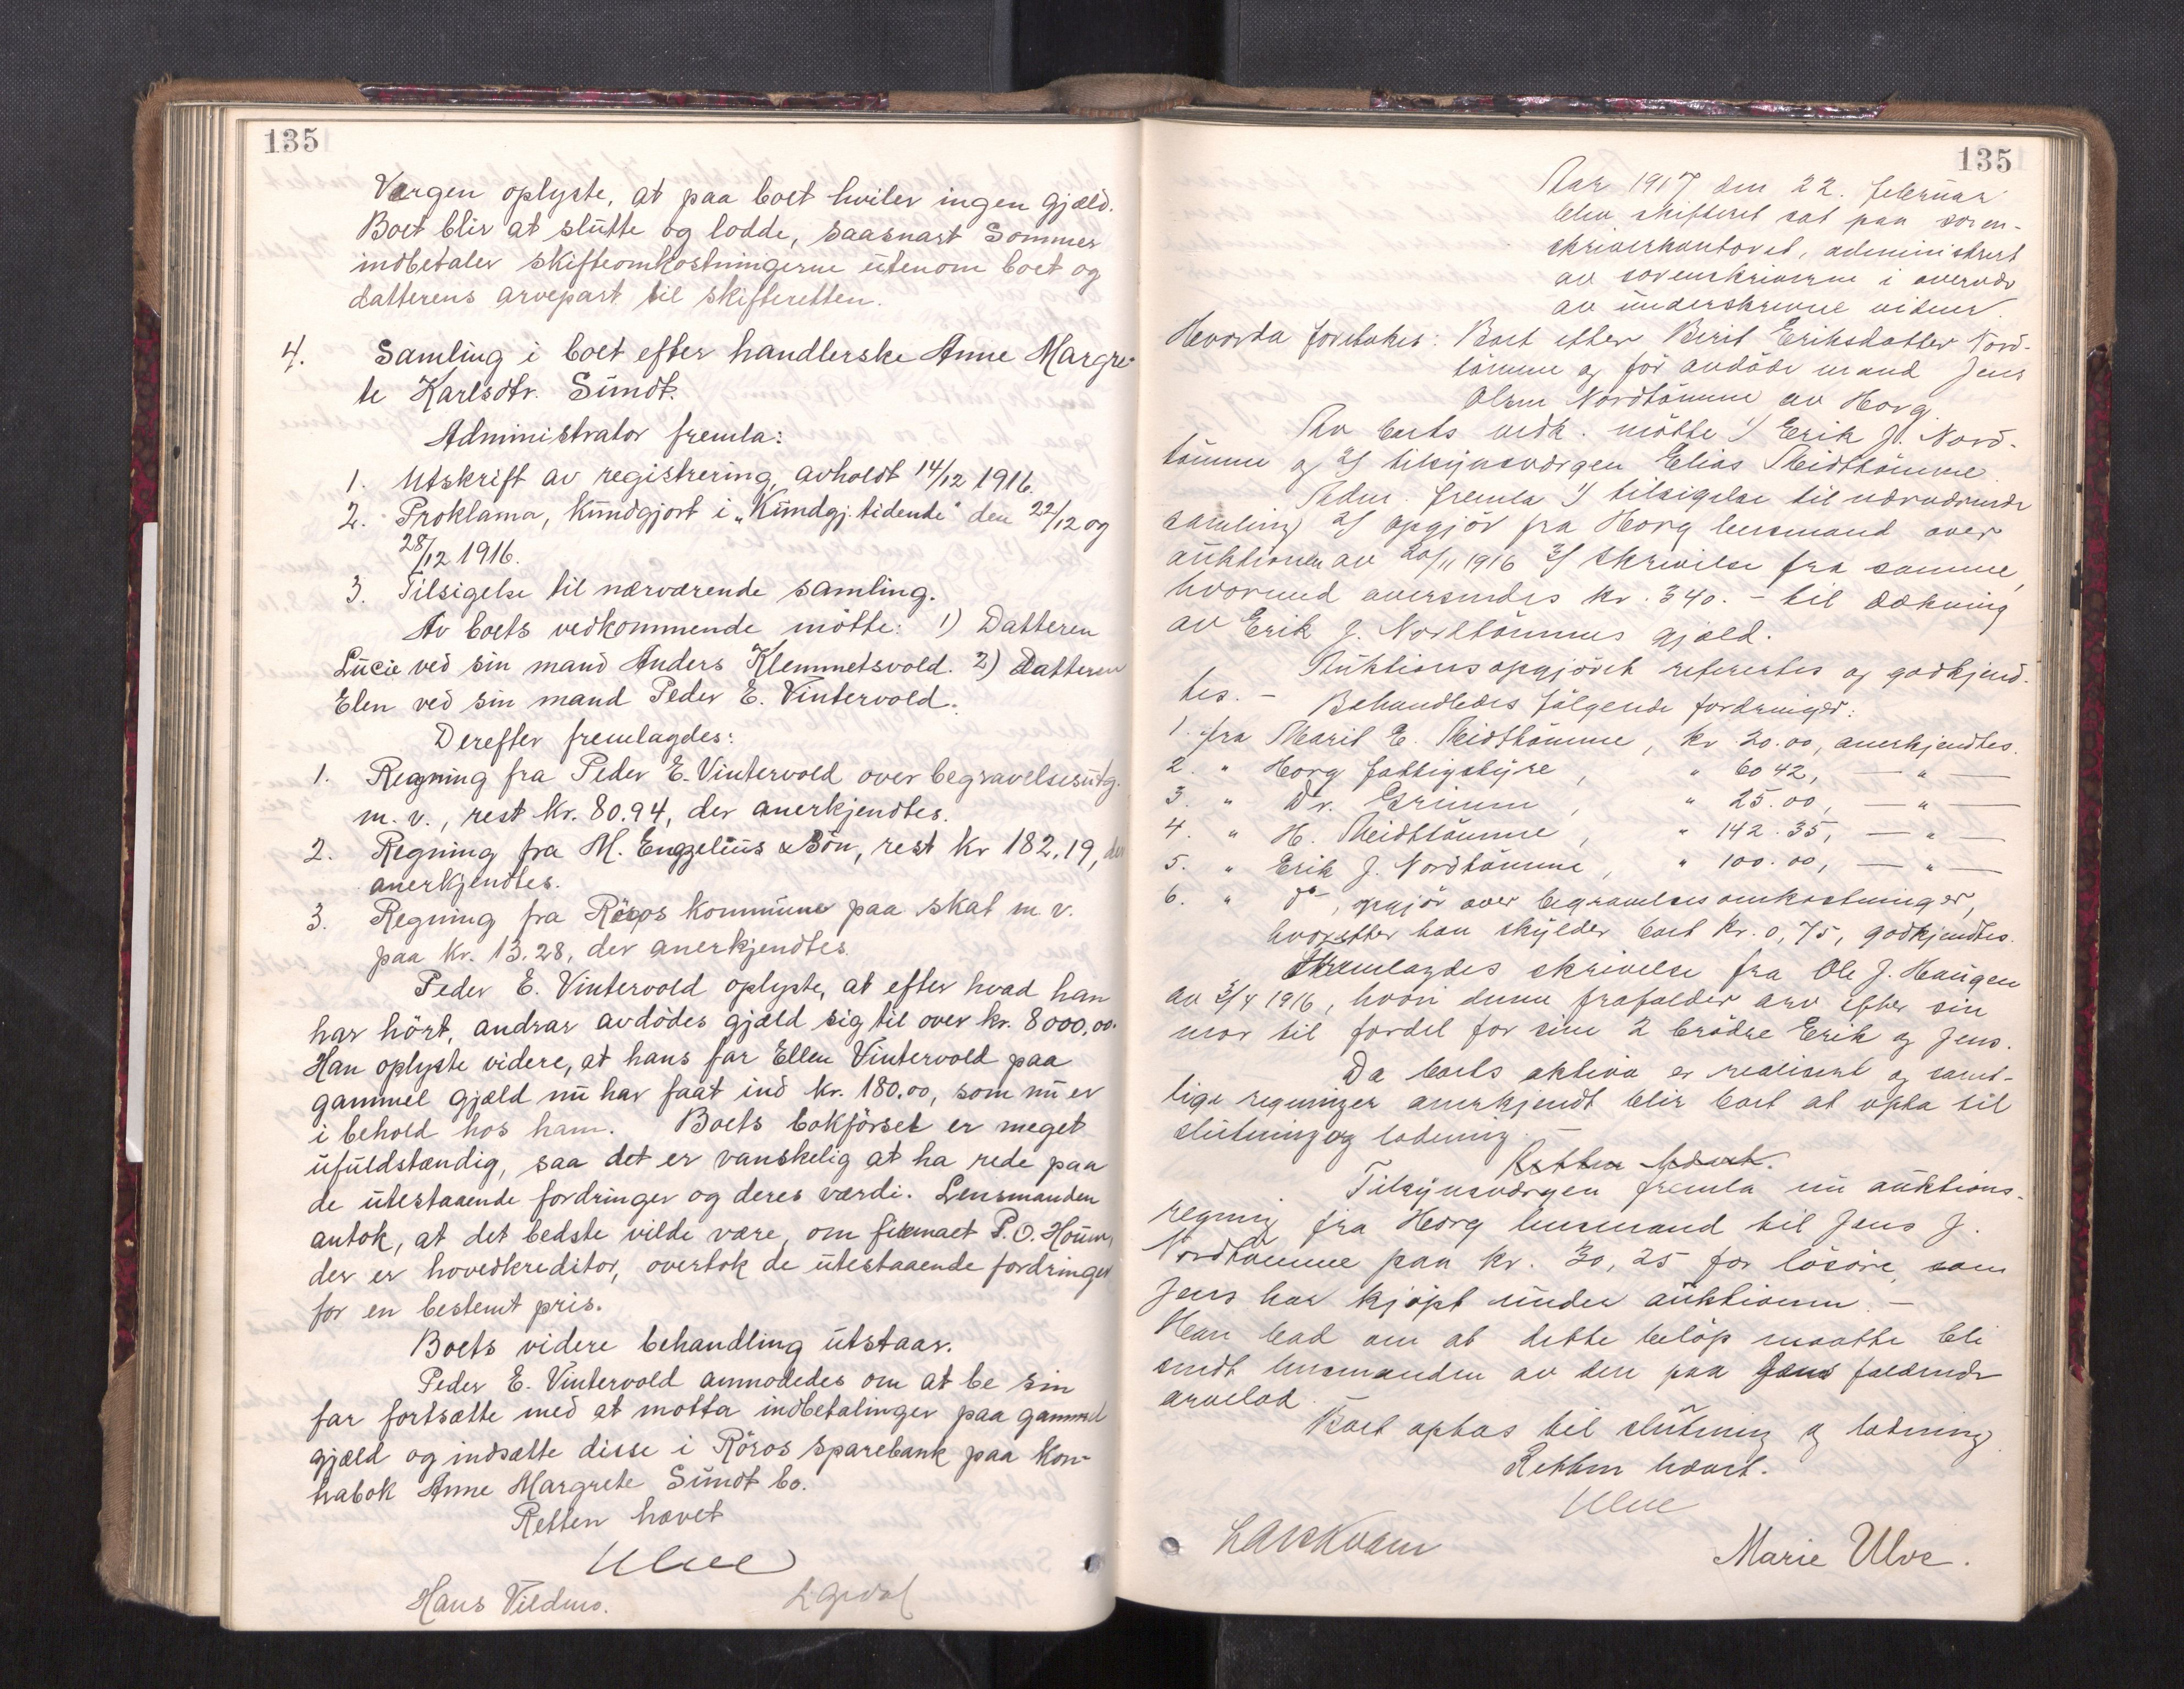 135
Værgen oplyste, at paa boet hviler ingen gjæld.
Boet blir at slutte og lodde, saasnart Sommer
indbetaler skifteomkostningerne utenom boet og
datterens arvepart til skifteretten.
4. Samling i boet efter handlerske Anne Margre-
te Karlsdtr. Sundt.
Administrator fremla:
1. Utskrift av registrering, avholdt 14/12 1916.
2. Proklama, kundgjort i "Kundgj. tidende" den 22/12 og
28/12 1916.
3. Tilsigelse til nærværende samling.
Av boets vedkommende møtte: 1) Datteren
Lucie ved sin mand Anders Klemmetsvold. 2) Datteren
Elen ved sin mand Peder E. Vintervold.
Derefter fremlagdes:
1. Regning fra Peder E. Vintervold over begravelsesutg.
m. v., rest kr. 80.94, der anerkjendtes.
2. Regning fra M. Engzelius & Søn, rest kr 182,19, der
anerkjendtes.
3. Regning fra Røros kommune paa skat m. v.
paa kr. 13.28, der anerkjendtes.
Peder E. Vintervold oplyste, at efter hvad han
har hört, andrar avdødes gjæld sig til over kr. 8000,00.
Han oplyste videre, at hans far Ellen Vintervold paa
gammel gjæld nu har faat ind kr. 180.00, som nu er
i behold hos ham. Boets bokförsel er meget
ufuldstændig, saa det er vanskelig at ha rede paa
de utestaaende fordringer og deres værdi. Lensmanden
antok, at det bedste vilde være, om firmaet P. O. Houm,
der er hovedkreditor, overtok de utestaaende fordringer
for en bestemt pris.
Boets videre behandling utstaar.
Peder E. Vintervold anmodedes om at be sin
far fortsætte med at motta indbetalinger paa gammel
gjæld og indsætte disse i Röros sparebank paa kon-
trabok Anne Margrete Sundt bo.
Retten hævet
Ulve
Hans Vildmo.
135
Aar 1917 den 22. februar
blev skifteret sat paa soren-
skriverkontoret, administrert
av sorenskriveren i overvær
av underskrevne vidner.
Hvorda foretokes: Boet efter Berit Eriksdatter Nord-
tömme og før avdöde mand Jens
Olsen Nordtömme av Horg.
Av boets vedk. mötte 1/ Erik J. Nord-
tömme og 2/ tilsynsværgen Elias Midttömme.
Adm. fremla 1/ tilsigelse til nærværende
samling 2/ opgjör fra Horg lensmand over
auktionen av 20/11 1916 3/ skrivelse fra samme,
hvormed oversendes kr. 340.- til dækning
av Erik J. Nordtömmes gjæld.
Auktionsopgjöret refertes og godkjend-
tes. - Behandledes fölgende fordringer:
1. fra Marit E. Midttömme, kr 20.00, anerkjendtes.
2. " Horg fattigstyre, " 60 42, — " —
3. " Dr. Grimm, " 25.00, — " —
4. " H. Midttömme, " 142.35, — " —
5. " Erik J. Nordtömme, " 100.00, — " —
6. " do, opgjör over begravelsesomkostninger,
hvorefter han skylder boet kr. 0,75, godkjendtes.
Fremlagdes skrivelse fra Ole J. Haugen
av 3/4 1916, hvori denne frafalder arv efter sin
mor til fordel for sine 2 brödre Erik og Jens.
Da boets aktiva er realisert og samt-
lige regninger anerkjendt blir boet at opta til
slutning og lodning. -
Retten hævet.
Tilsynsværgen fremla nu auktions-
regning fra Horg lensmand til Jens J.
Nordtömme paa kr. 30,25 for lösöre, som
Jens har kjöpt under auktionen. -
Han bad om at dette belöp maatte bli
sendt lensmanden av den paa Jens faldende
arvelod.
Boet optas til slutning og lodning.
Retten hævet.
Ulve
Marie Ulve.